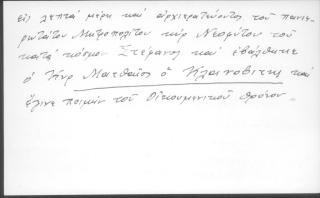 εἰς λεπτά μέρη καί ἀρχιερατεύοντος τοῦ πανιε-
ρωτάτου Μητροπολίτου κύρ Νεοφύτου τοῦ
κατά κόσμον Στεφάνος καί ἐβάλθηκε
ὁ Κύρ Ματθαῖος ὁ
καί
ἔγινε ποιμήν τοῦ Οἰκουμενικοῦ Θρόνου